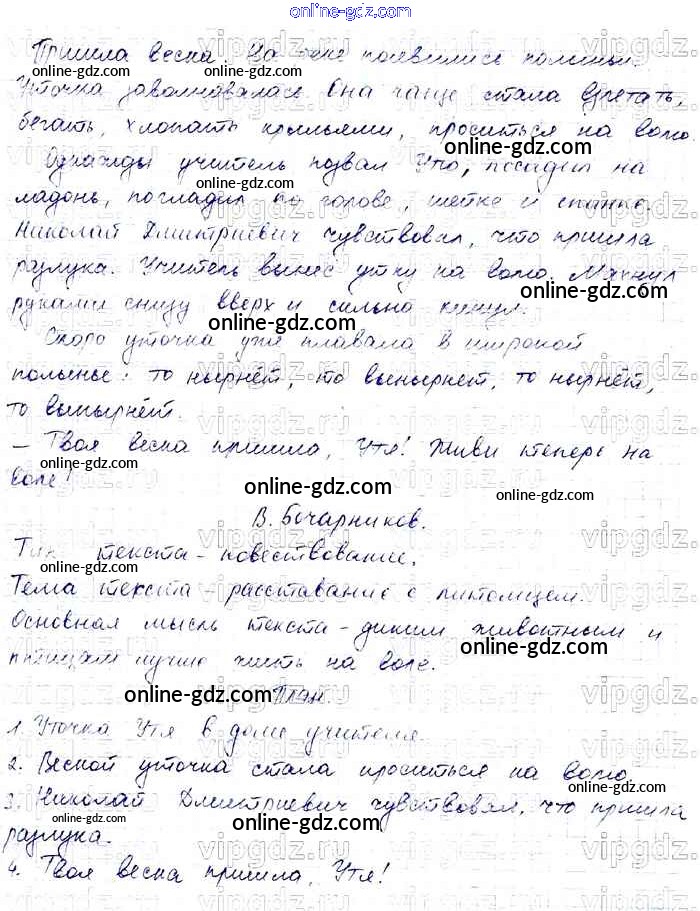 online-gdz.com
Пришла весна. На реке появились полыньи.
online-gdz.com
Уточка заволновалась. Она чаще стала взлетать,
бегать, хлопать крыльями, проситься на волю.
Однажды учитель позвал Утю, посадил на
online-gdz.com
ладонь, погладил по голове, шейке и спинке.
Николай Дмитриевич чувствовал, что пришла
разлука. Учитель вынес утку на волю. Махнул
руками снизу вверх и сильно кинул.
online-gdz.com
Скоро уточка уже плавала в широкой
полынье: то нырнёт, то вынырнет, то нырнёт,
то вынырнет.
– Твоя весна пришла, Утя! Живи теперь на
воле!
online-gdz.com
В. Бочарников.
Тип текста – повествование.
Тема текста – расставание с питомцем.
Основная мысль текста – диким животным и
птицам лучше жить на воле.
online-gdz.com
План.
1. Уточка Утя в доме учителя.
online-gdz.com
2. Весной уточка стала проситься на волю.
3. Николай Дмитриевич чувствовал, что пришла
online-gdz.com
разлука.
4. Твоя весна пришла, Утя!
online-gdz.com